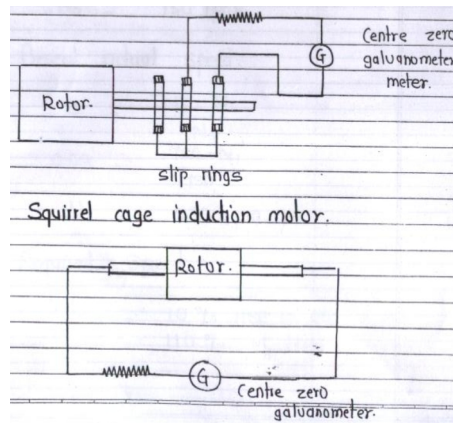 Centre zero
G
galvanometer
meter.
Rotor.
slip rings
Squirrel cage induction motor.
Rotor.
G
Centre zero
galvanometer.